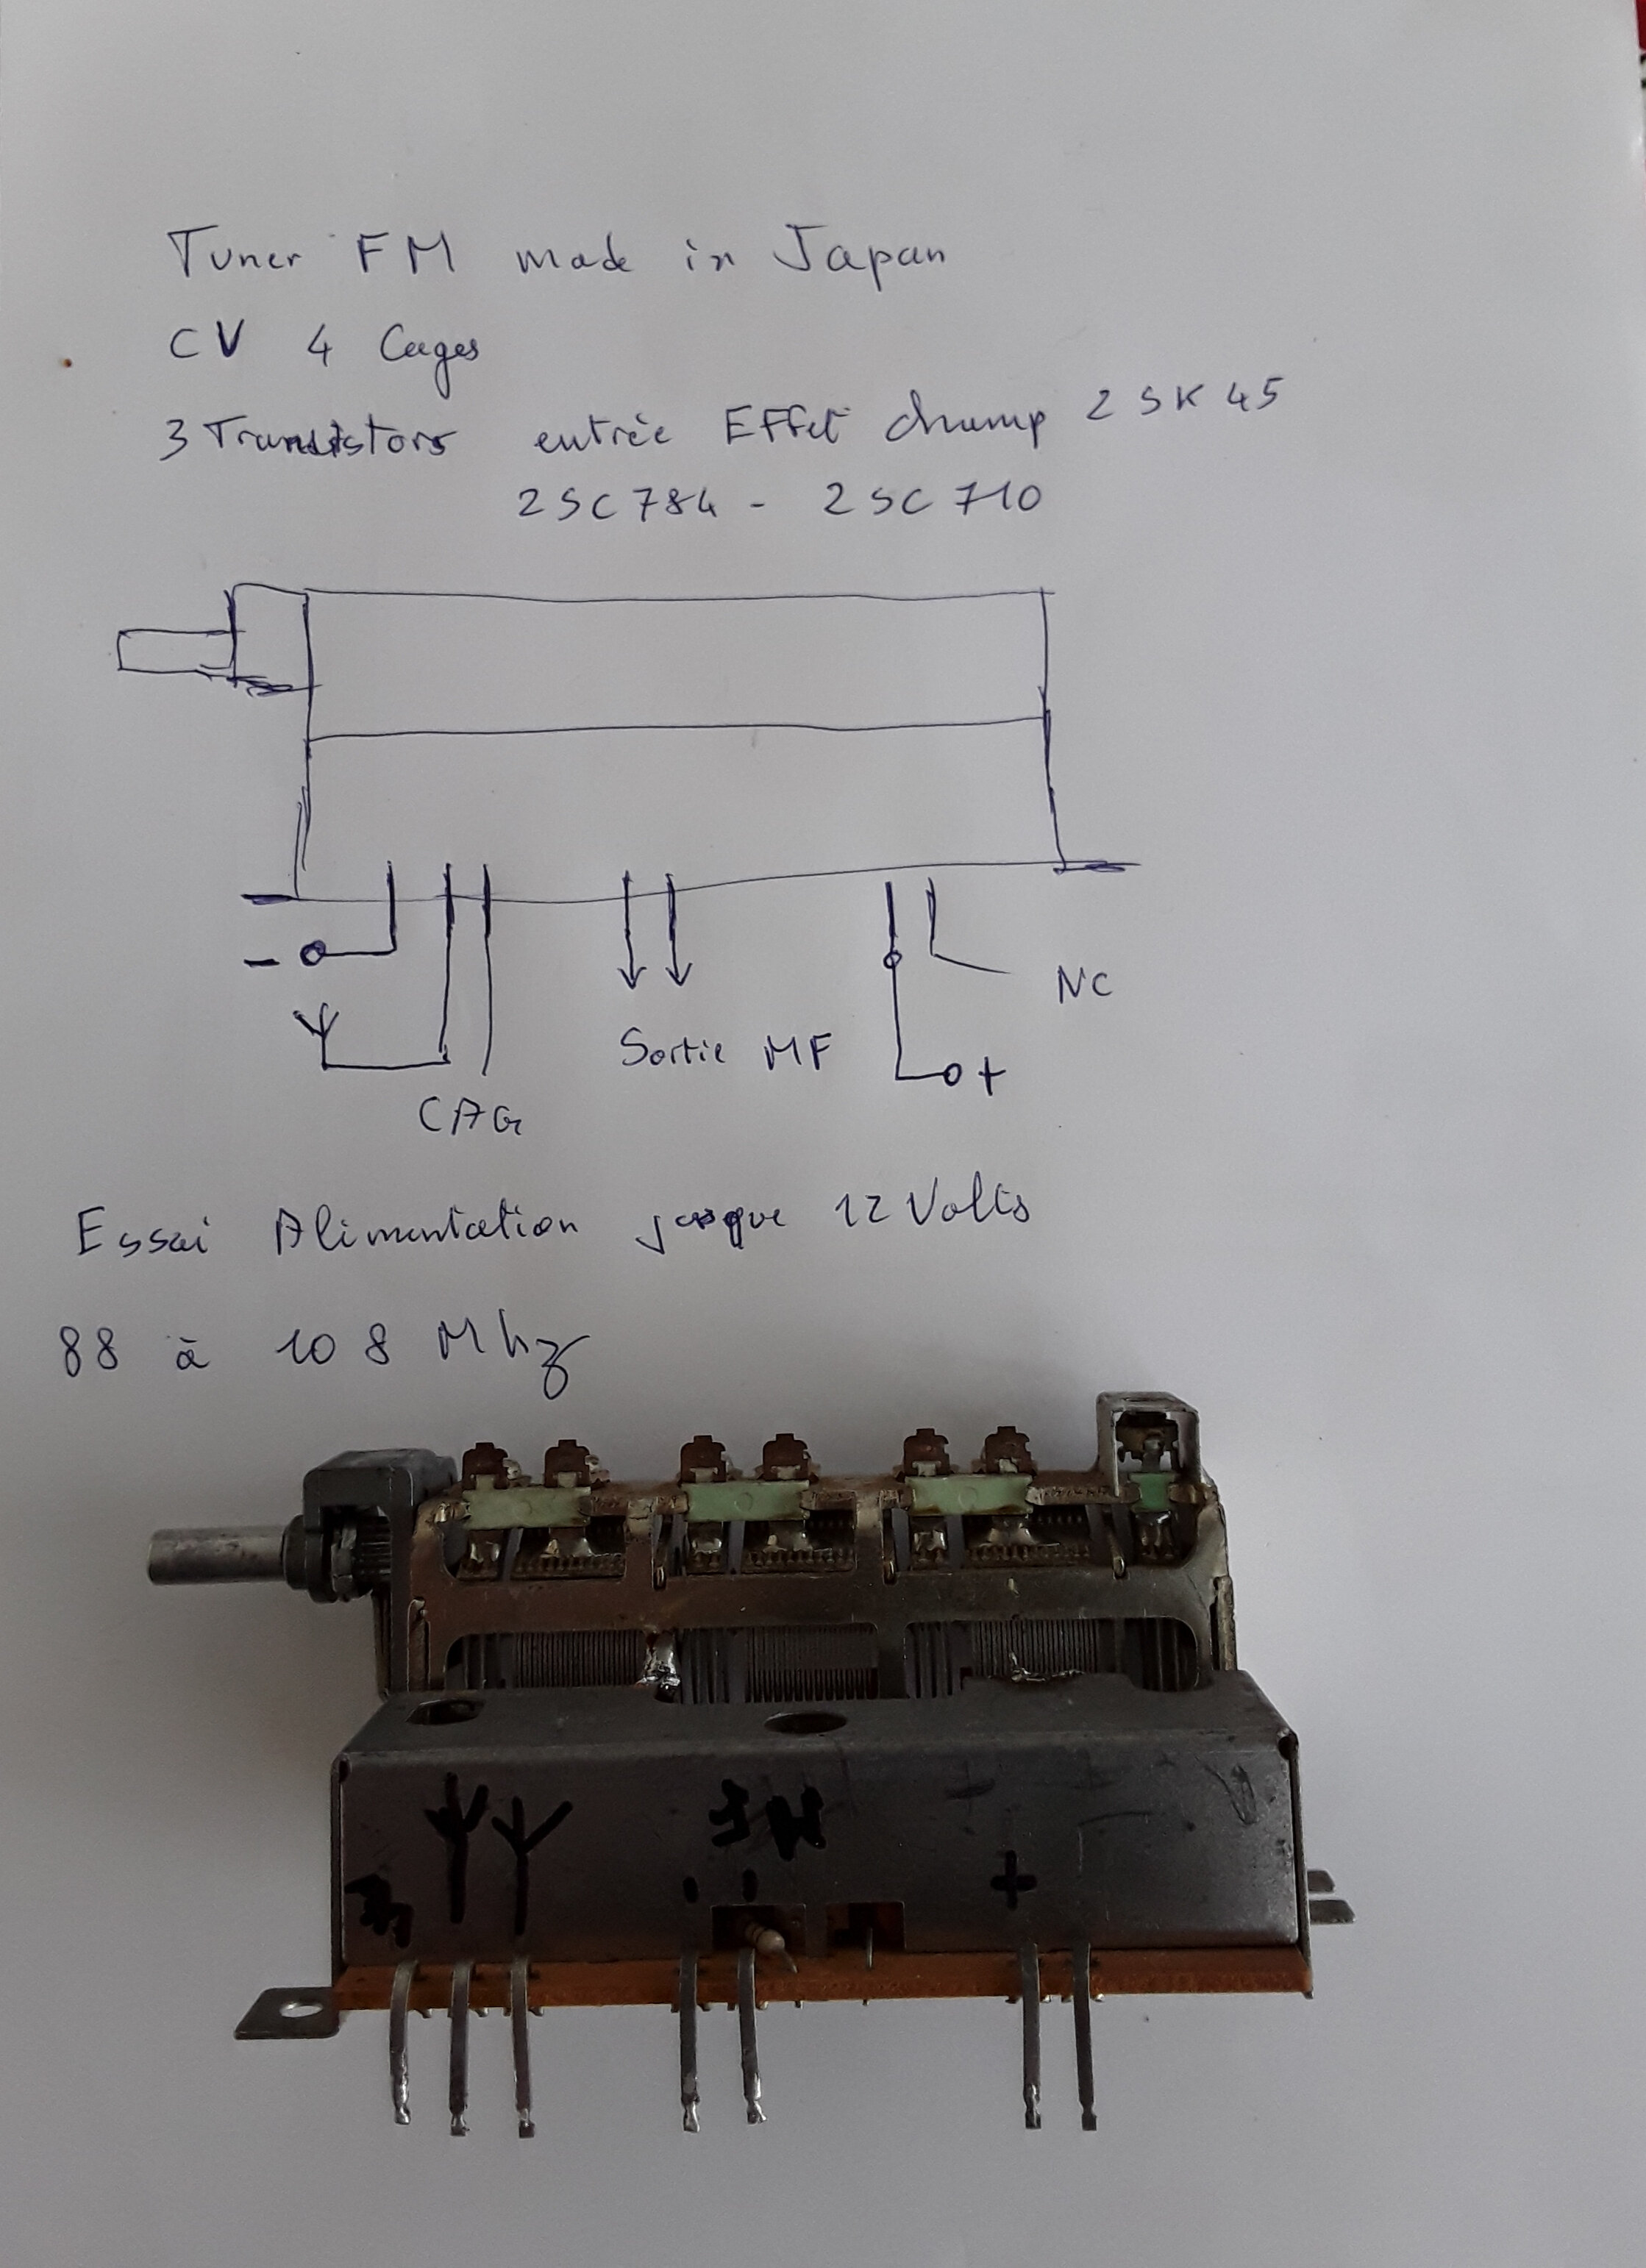 Tuner FM made in Japan
CV 4 Cages
3 Transistors entrée Effet champ 2SK45
2SC784 - 2SC710
-
NC
Sortie MF
+
CAG
Essai Alimentation jusque 12 Volts
88 à 108 Mhz
MF
+